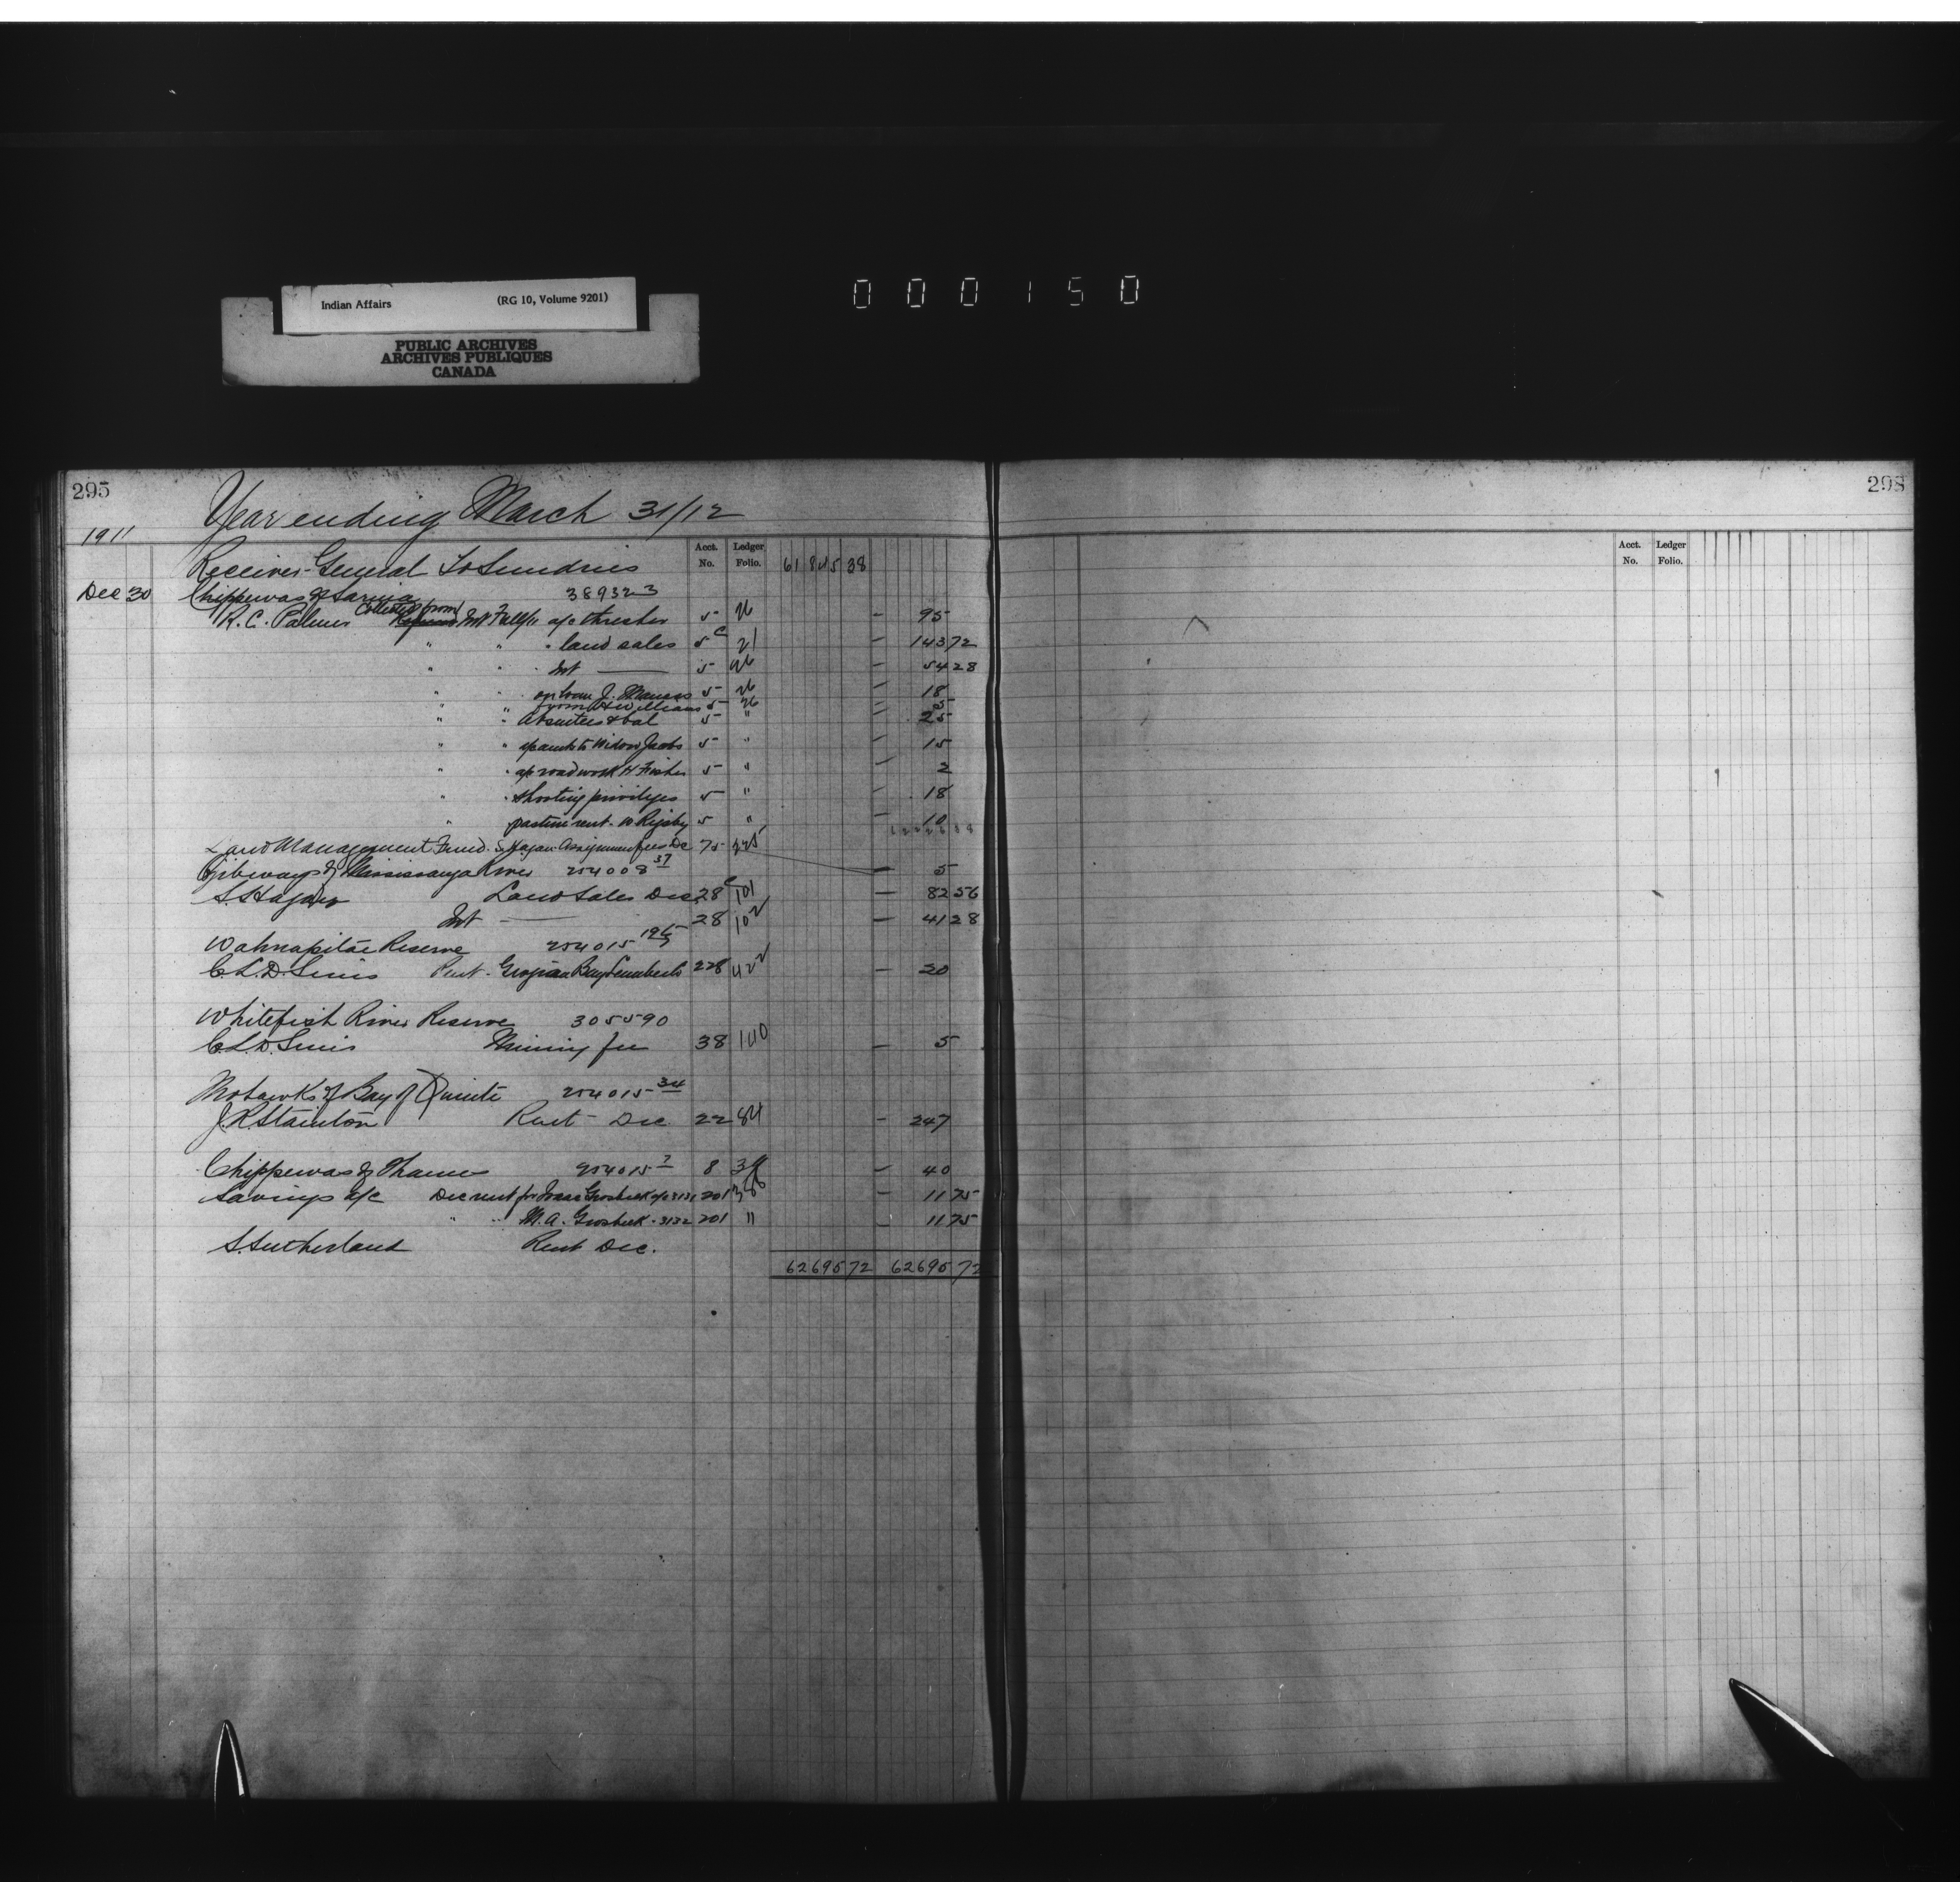 Indian Affairs (RG 10, Volume 9201)
PUBLIC ARCHIVES
ARCHIVES PUBLIQUES
CANADA
000150
295
298
Year ending March 31/12
1911
Acct. No. Ledger Folio.
Acct. No. Ledger Folio.
Receiver-General To Sundries 61 845 38
Dec 30 Chippewas of Sarnia 38932-3
R. C. Palmer Collected from Int Fall/11 a/c thresher 5 26 - 95
" " " land sales 5c 21 - 143 72
" " " Int — 5 26 - 54 28
" " on loan J. Manass 5 26 - 18
" " from A Williams 5 26 - 5
" " Absentees & bal 5 " - 25
" " to Widow Jacobs 5 " - 15
" " a/c road work H Fisher 5 " - 2
" " shooting privileges 5 " - 18
" pasture rent - W Rigsby 5 " - 10
Land Management Fund. S Hagan Assignment fees Dec 75 - 5
Ojibeways of Mississauga River 254008 57
S. Hagan Land Sales Dec 28c 101 - 82 56
Int — 28 102 - 41 28
Wahnapitae Reserve 254015 196
C. L. D. Sims Rent - Georgian Bay Lumber Co 228 422 - 20
Whitefish River Reserve 305590
C. L. D. Sims Mining fee 38 140 - 5
Mohawks of Bay of Quinte 254015 34
J. R. Stainton Rent - Dec. 22 84 - 247
Chippewas of Thames 254015 7 8 34 - 40
Savings a/c Dec rent for Isaac Grosbeck a/c 3131 201 386 - 11 75
" " M. A. Grosbeck - 3132 201 " - 11 75
S. Sutherland Rent Dec.
62695 72 62695 72